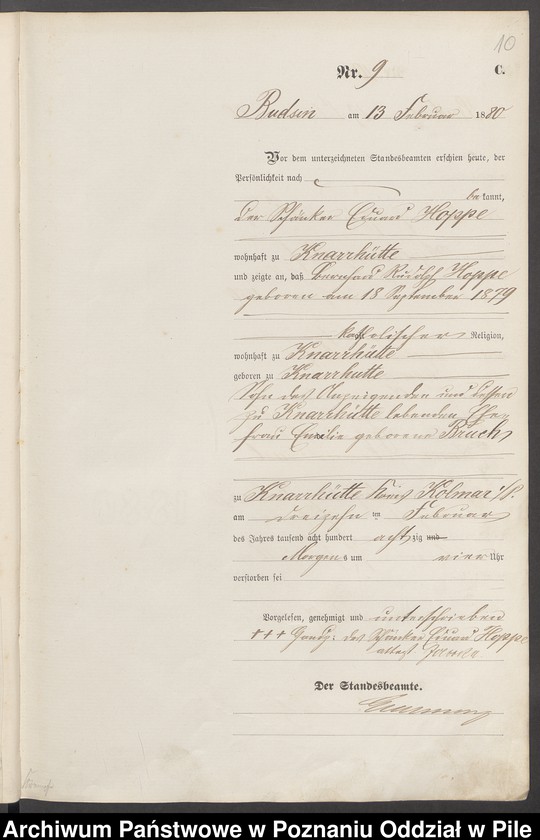 10
Nr. 9
C.
Budsin am 13 Februar 1880
Vor dem unterzeichneten Standesbeamten erschien heute, der
Persönlichkeit nach
be kannt,
der Schänker Eduard Hoppe
wohnhaft zu Knarrhütte
und zeigte an, daß Bernhard Rudolf Hoppe
geboren am 18 September 1879
katholischer Religion,
wohnhaft zu Knarrhütte
geboren zu Knarrhutte
Sohn des Anzeigenden und dessen
zu Knarrhütte lebenden Ehe
frau Emilie geborene Bruch
zu Knarrhütte Kreis Kolmar i/P.
am dreizehn ten Februar
des Jahres tausend acht hundert acht zig und
Morgens um vier Uhr
verstorben sei
Vorgelesen, genehmigt und unterschrieben
+++ Handz: des Schänker Eduard Hoppe
attest
Der Standesbeamte.
Archiwum Państwowe w Poznaniu Oddział w Pile